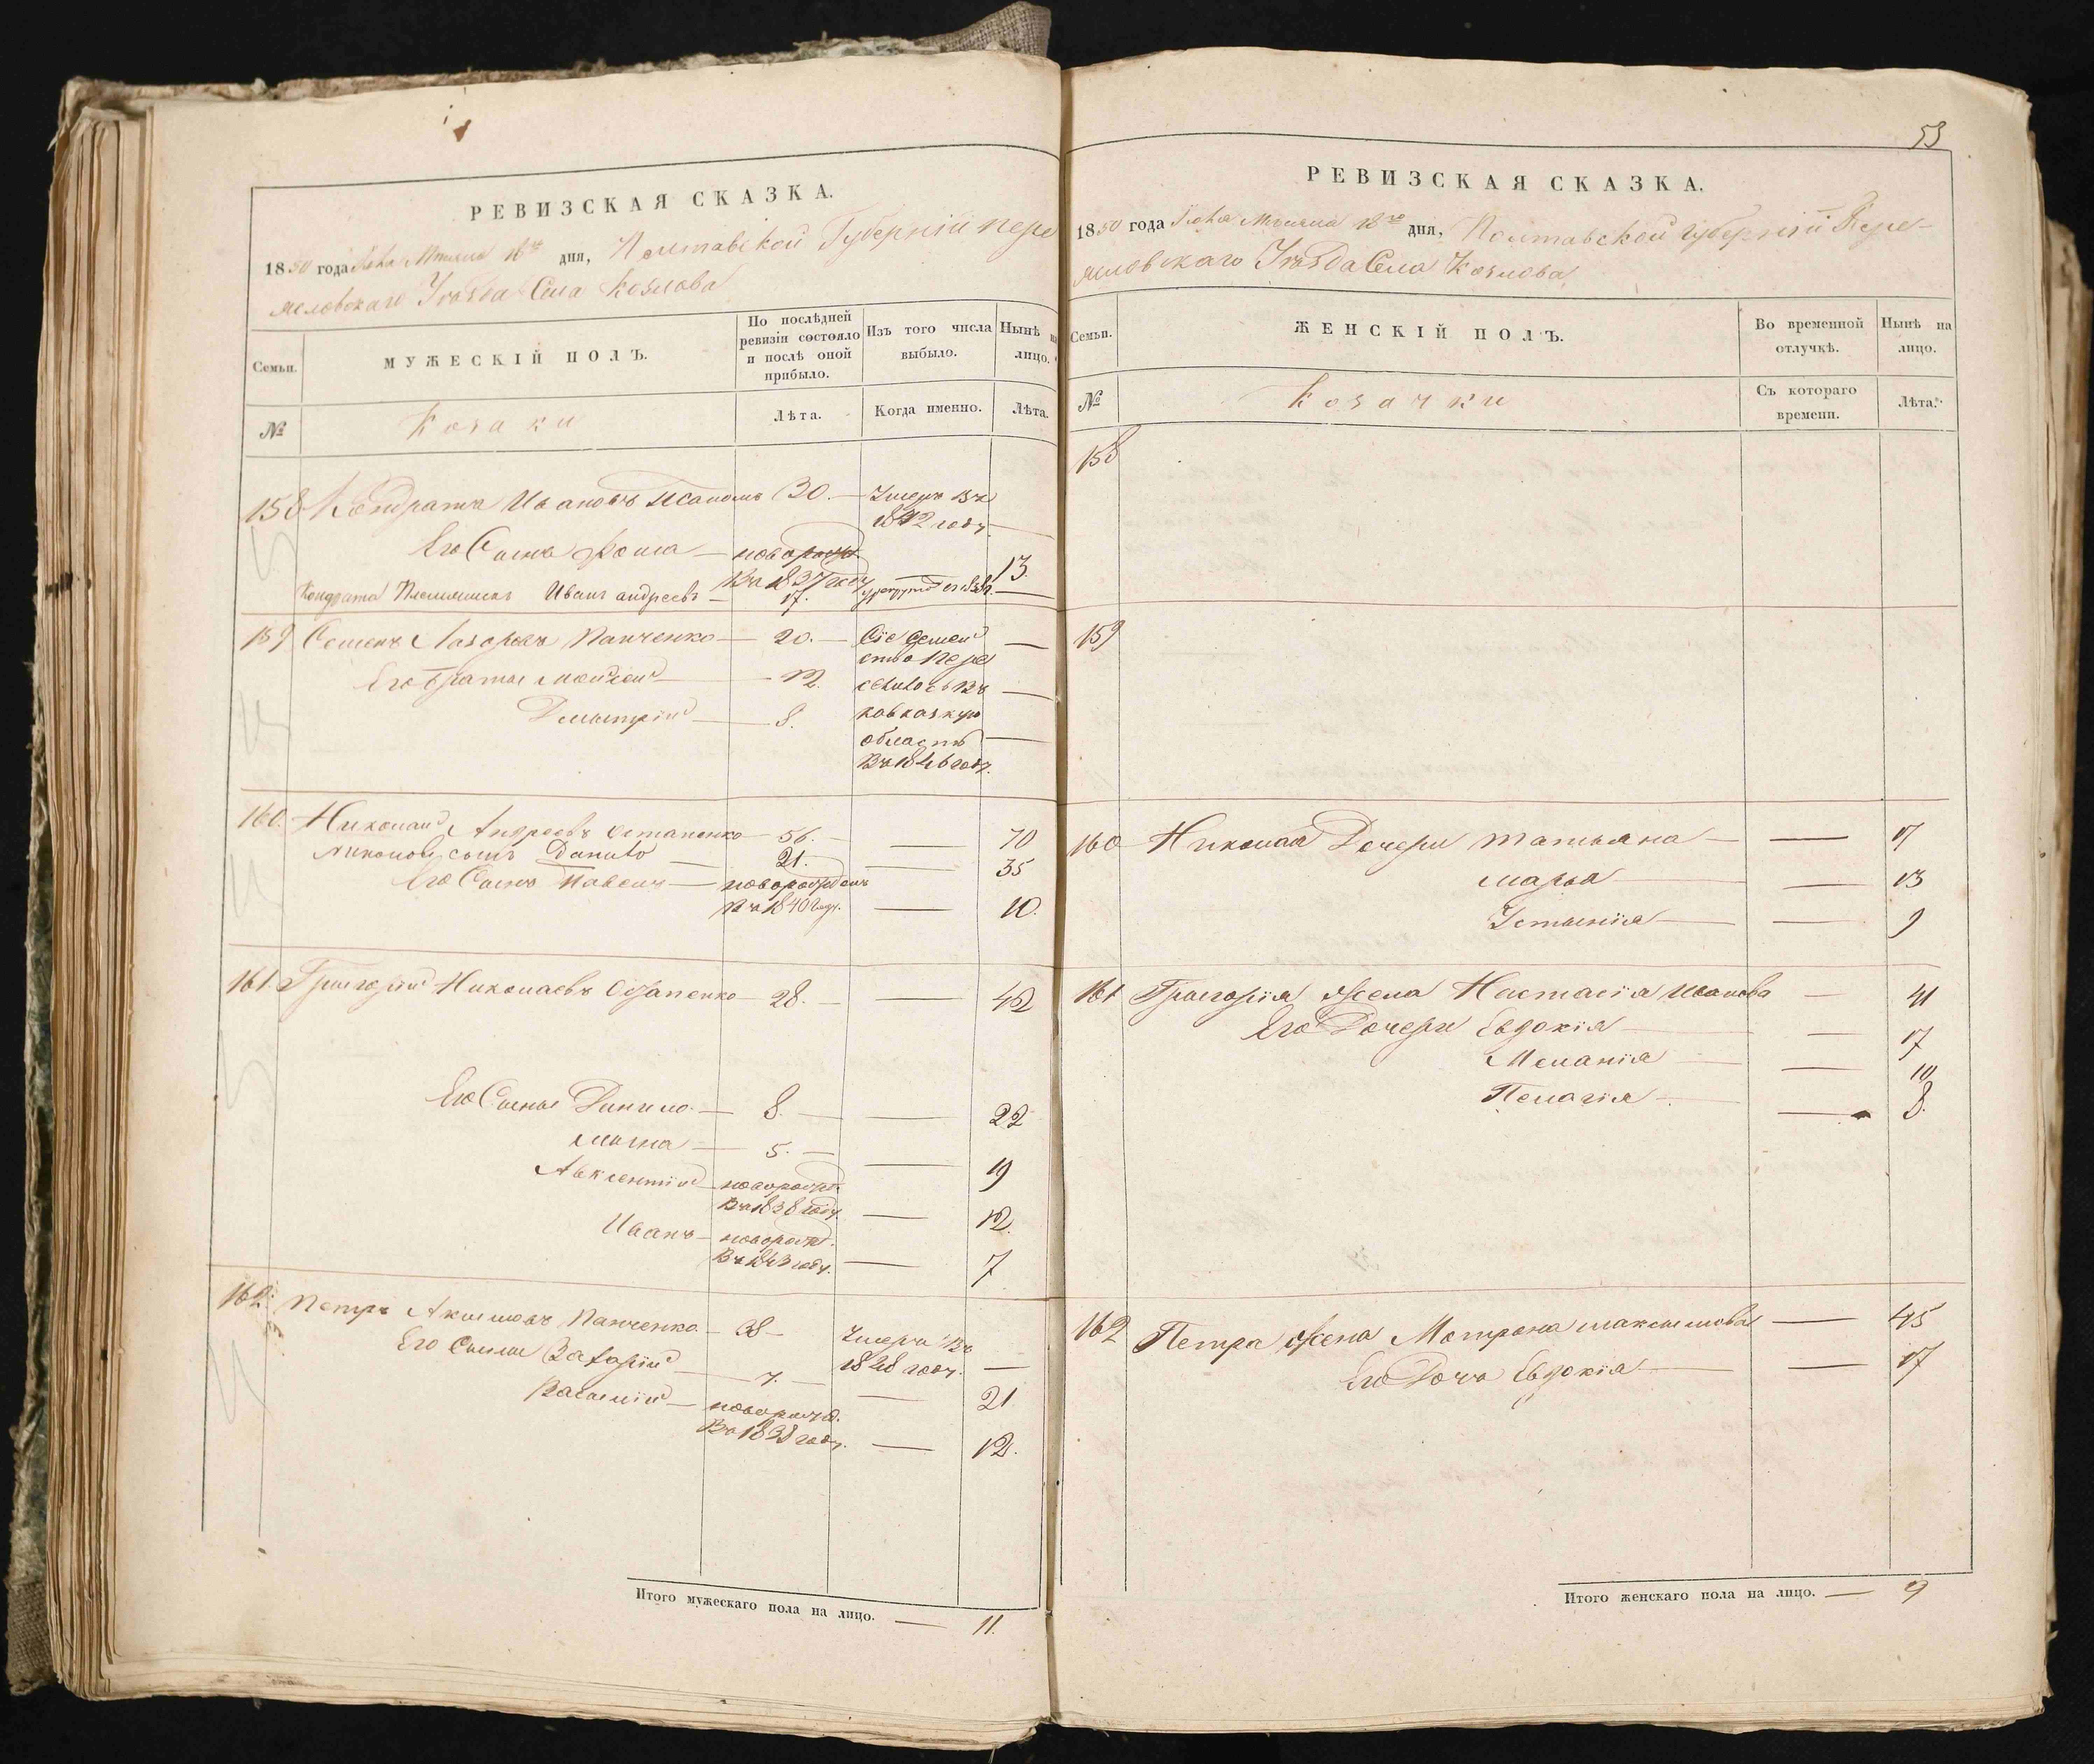 РЕВИЗСКАЯ СКАЗКА.
1850 года Мѣсяца 16го дня, Полтавской Губерніи Пере
ясловскаго Уѣзда Села Козлова
Семьи.
МУЖЕСКІЙ ПОЛЪ.
По послѣдней ревизіи состояло и послѣ оной прибыло.
Изъ того числа выбыло.
Нынѣ на лицо.
№
Козаки
Лѣта.
Когда именно.
Лѣта.
158 Кондратъ Ивановъ 30. Умеръ въ
1842 году
Его Сынъ Фома новорожд.
въ 1837 году 13.
Кондрата Племянникъ Иванъ Андреевъ 17.
159 Семенъ Лазоревъ Панченко 20. Сіе Семей
ство пере
Его Братья Моисей 12. селилось въ
Дмытрій 8. кавказкую
область
въ 1846 году.
160. Николай Андреевъ Остапенко 56. 70
Николая сынъ Данило 21. 35
Его Сынъ Павелъ новорожденъ
въ 1840 году. 10.
161. Григорій Николаевъ Остапенко 28. 42
Его Сыны Данило 8. 22
5. 19
Авксентій новорожд.
въ 1838 году. 12.
Иванъ новорожд.
въ 1843 году. 7
162. Петръ Акимовъ Панченко 38 Умеръ въ
1848 году.
Его Сыны Захарій 7. 21
Василій новорожд.
въ 1838 году. 12.
Итого мужескаго пола на лицо. 11.
53
РЕВИЗСКАЯ СКАЗКА.
1850 года Мѣсяца 16го дня, Полтавской Губерніи Пере-
ясловскаго Уѣзда Села Козлова
Семьи.
ЖЕНСКІЙ ПОЛЪ.
Во временной отлучкѣ.
Нынѣ на лицо.
№
Козачки
Съ котораго времени.
Лѣта.
158
159
160 Николая Дочери Татьяна 17
Марья 13
Устинія 9
161 Григорія Жена Настасія Иванова 41
Его Дочери Евдокія 17
Меланія 10
Пелагія 8.
162 Петра Жена Мотрона Максимова 45
Его Дочь Евдокія 17
Итого женскаго пола на лицо. 9